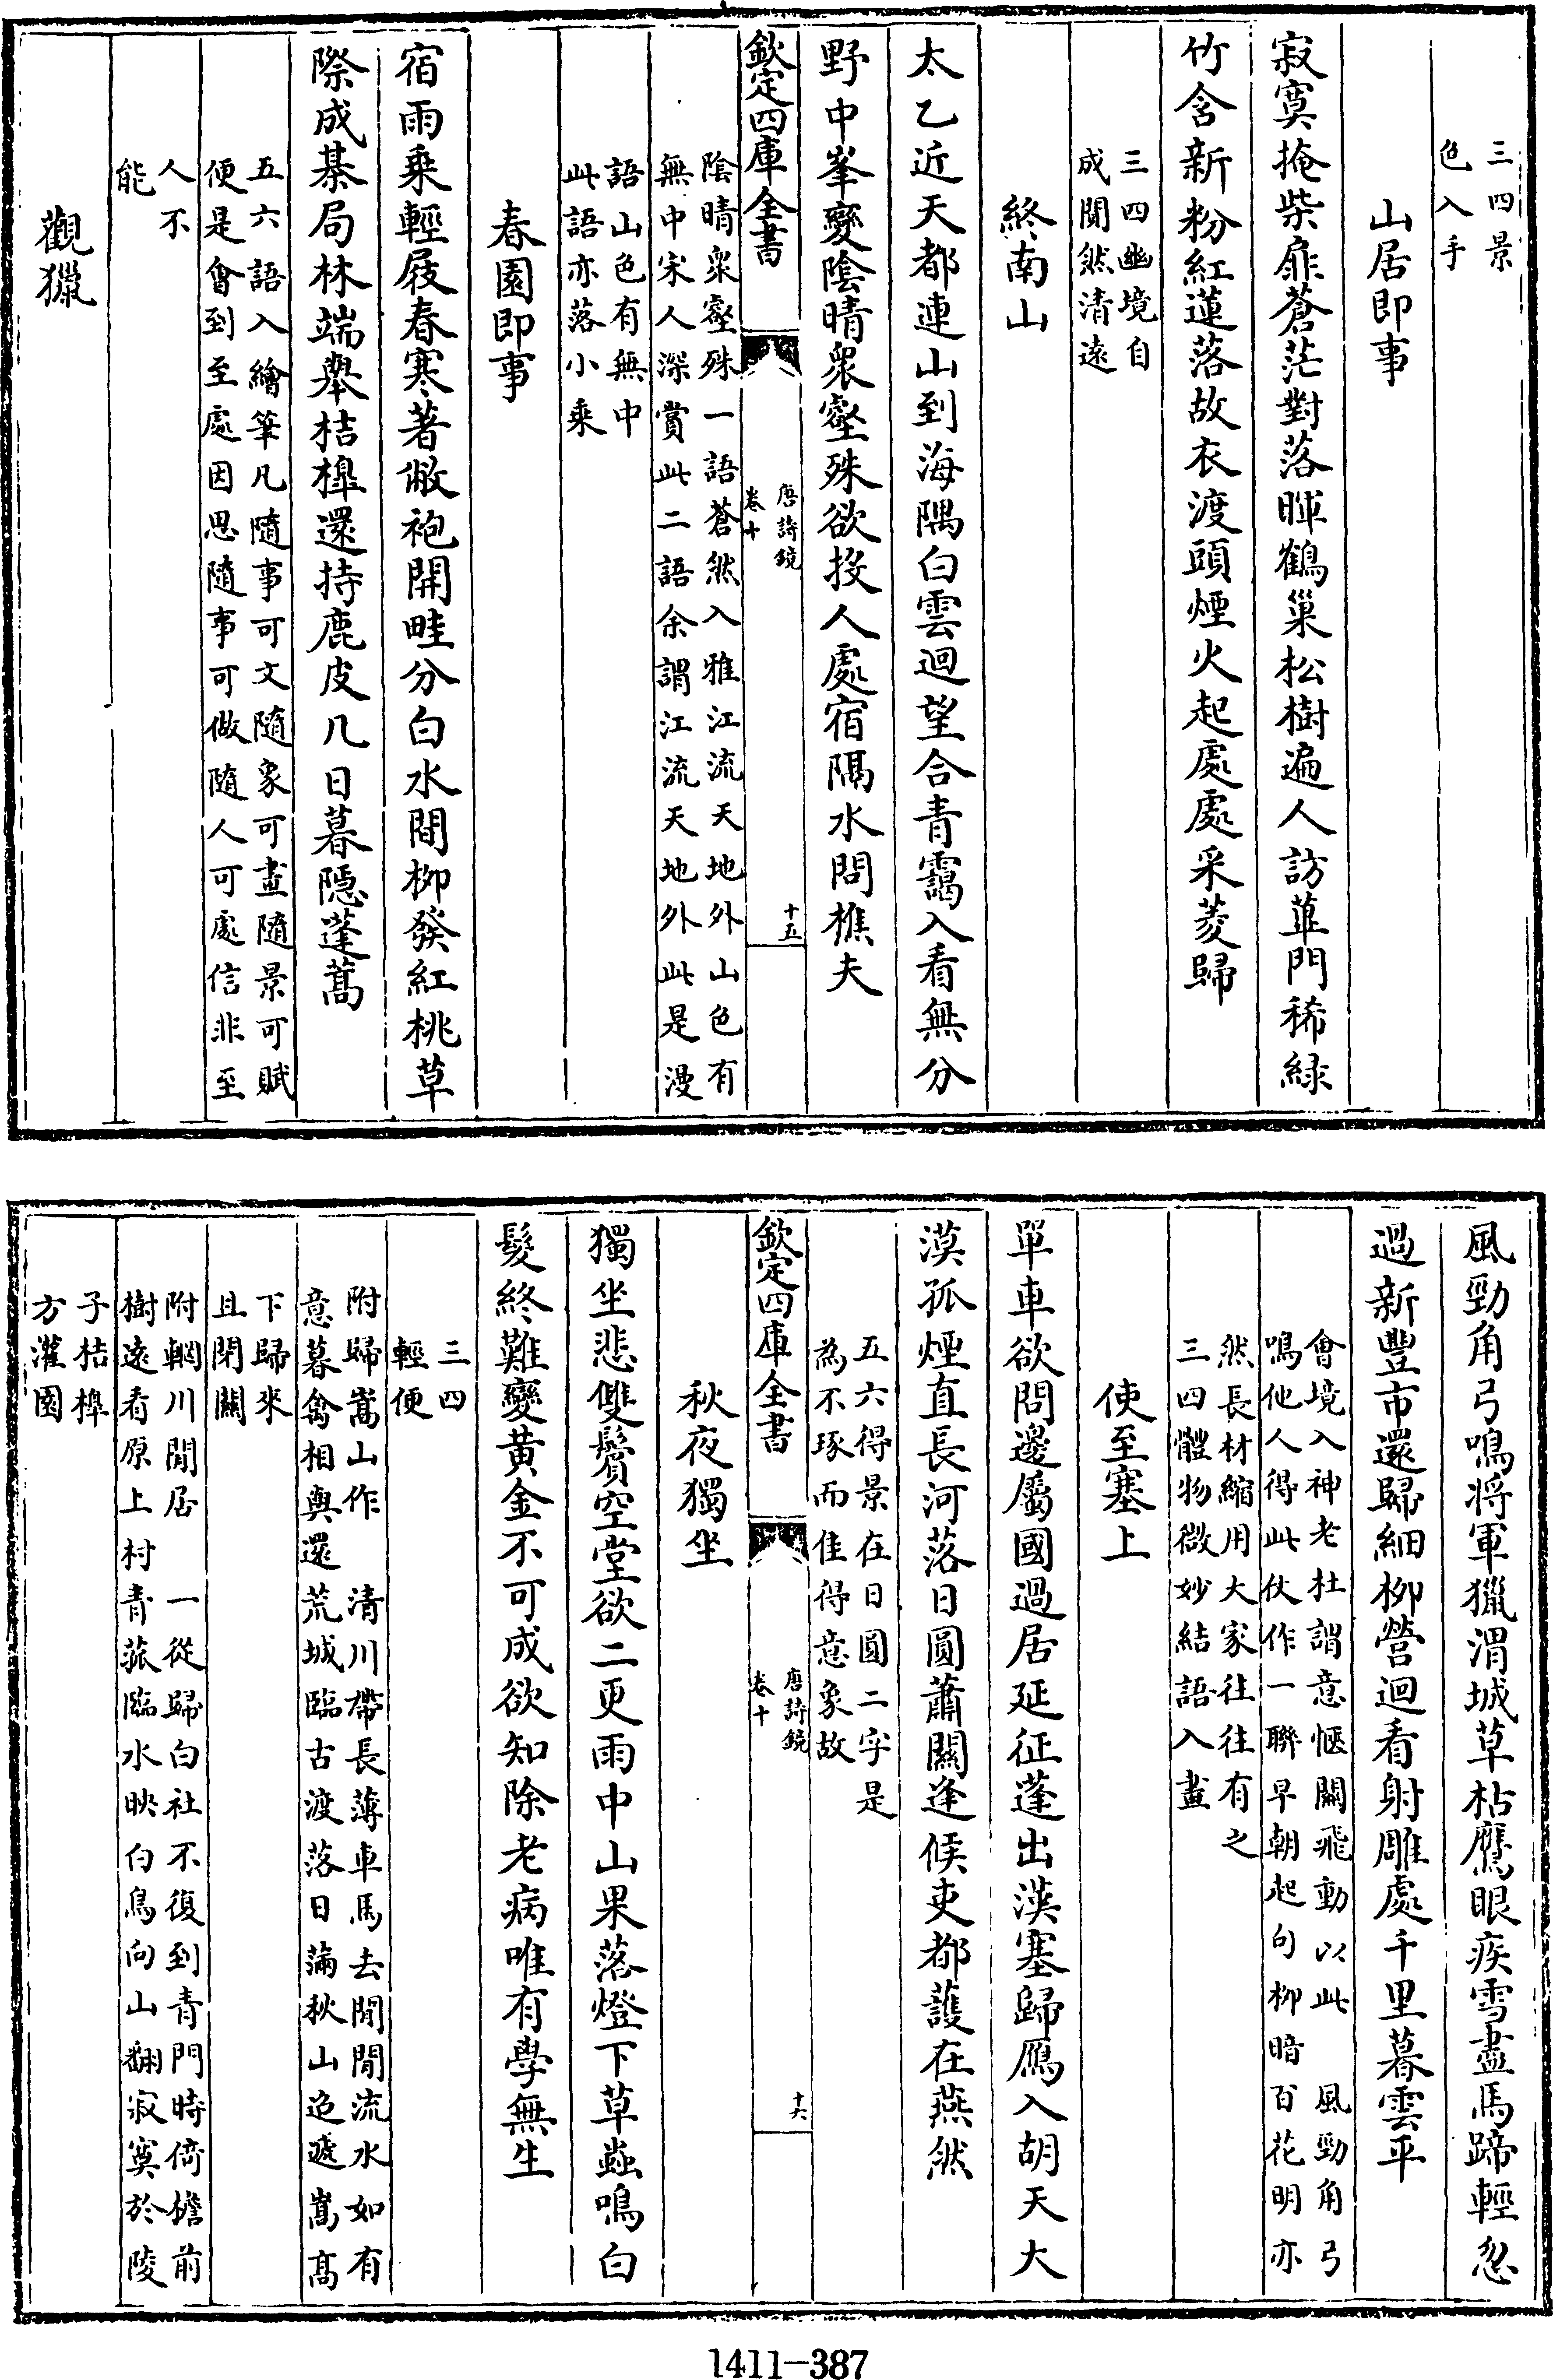 三四景
色入手
山居即事
寂寞掩柴扉蒼茫對落暉鶴巢松樹遍人訪蓽門稀緑
竹含新粉紅蓮落故衣渡頭煙火起處處采菱歸
三四幽境自
成閒然清遠
終南山
太乙近天都連山到海隅白雲迴望合青靄入看無分
野中峯變陰晴衆壑殊欲投人處宿隔水問樵夫
欽定四庫全書
唐詩鏡
卷十
十五
陰晴衆壑殊一語蒼然入雅江流天地外山色有
無中宋人深賞此二語余謂江流天地外此是漫
語山色有無中
此語亦落小乘
春園即事
宿雨乘輕屐春寒著敝袍開畦分白水間柳發紅桃草
際成棊局林端舉桔橰還持鹿皮几日暮隱蓬蒿
五六語入繪筆凡隨事可文隨象可畫隨景可賦
便是會到至處因思隨事可做隨人可處信非至
人不
能
觀獵
風勁角弓鳴將軍獵渭城草枯鷹眼疾雪盡馬蹄輕忽
過新豐市還歸細柳營迴看射雕處千里暮雲平
會境入神老杜謂意愜關飛動以此 風勁角弓
鳴他人得此仗作一聯早朝起句柳暗百花明亦
然長材縮用大家往往有之
三四體物微妙結語入畫
使至塞上
單車欲問邊屬國過居延征蓬出漢塞歸鴈入胡天大
漠孤煙直長河落日圓蕭關逢候吏都護在燕然
五六得景在日圓二字是
為不琢而佳得意象故
欽定四庫全書
唐詩鏡
卷十
十六
秋夜獨坐
獨坐悲雙鬢空堂欲二更雨中山果落燈下草蟲鳴白
髮終難變黄金不可成欲知除老病唯有學無生
三四
輕便
附歸嵩山作 清川帶長薄車馬去閒閒流水如有
意暮禽相與還荒城臨古渡落日滿秋山迢遞嵩髙
下歸來
且閉關
附輞川閒居 一從歸白社不復到青門時倚檐前
樹遠看原上村青菰臨水映白鳥向山翻寂寞於陵
子桔橰
方灌園
1411-387